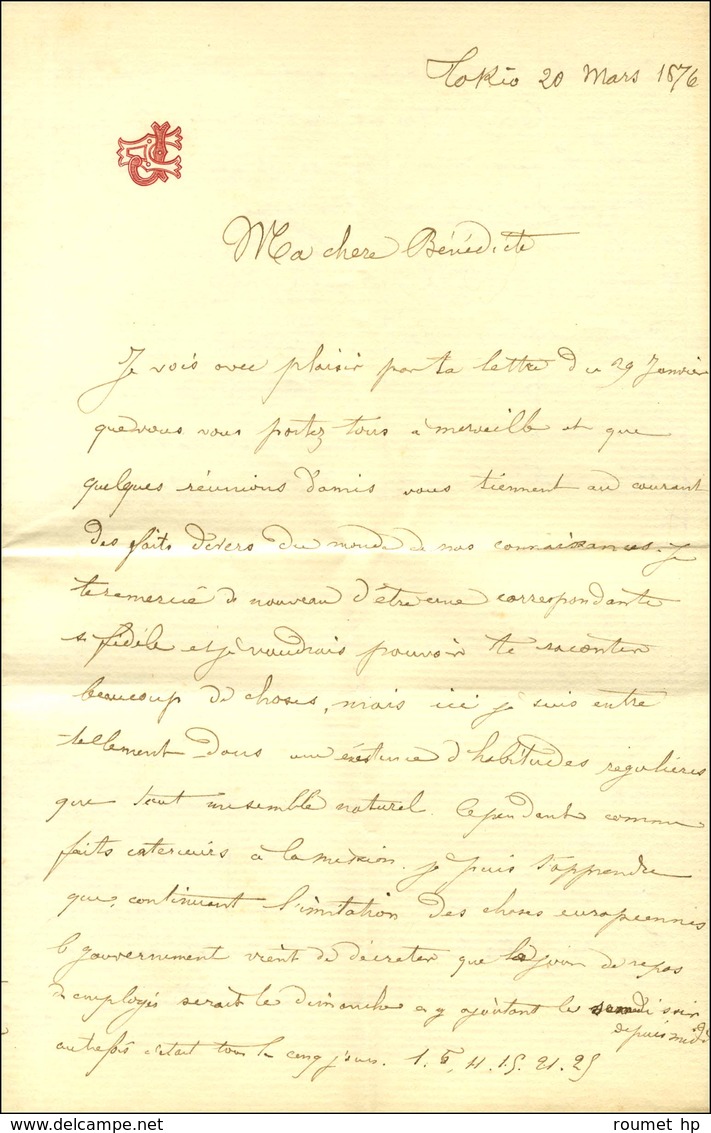 Tokio 20 Mars 1876
Ma chere Bénédicte
Je vois avec plaisir par ta lettre du 29 Janvier
que vous vous portez tous a merveille et que
quelques réunions d'amis vous tiennent au courant
des faits divers du monde de nos connaissances. Je
te remercie de nouveau d'être une correspondante
si fidèle et je voudrais pouvoir te raconter
beaucoup de choses, mais ici je suis entre
tellement dans une existence d'habitudes regulières
que tout me semble naturel. Cependant comme
faits exterieurs à la mission je puis t'apprendre
que, continuant l'imitation des choses européennes
le gouvernement vient de décreter que le jour de repos
des employés serait le dimanche en y ajoutant le samedi soir
depuis midi
autrefois c'était tous les cinq jours. 1. 5, 11. 15. 21. 25
roumet hp
roumet hp